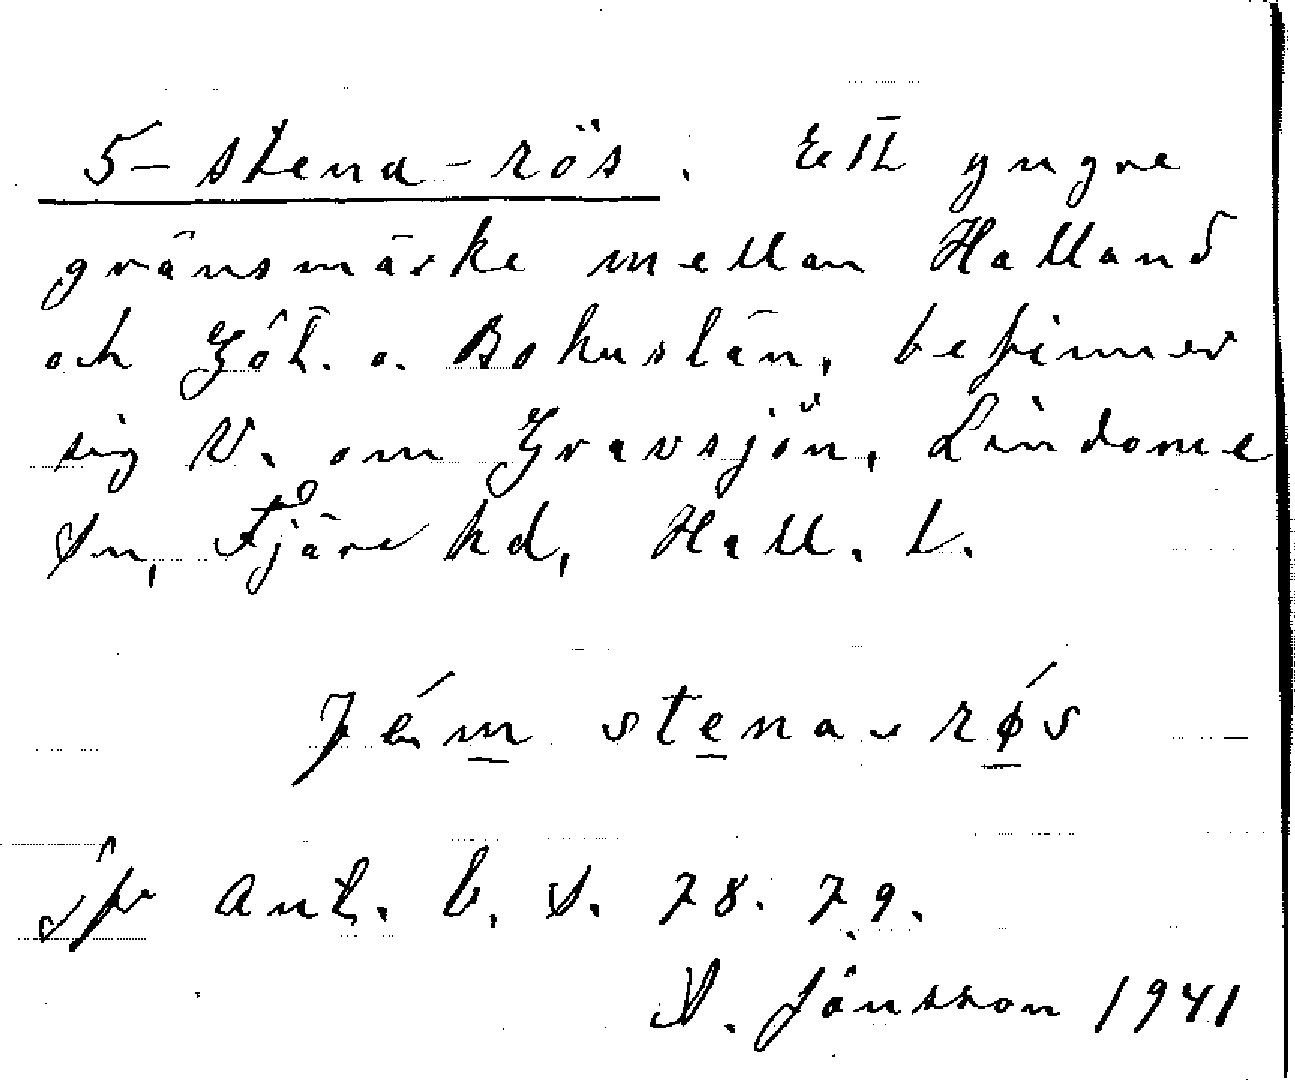 5-stena-rös. Ett yngre
gränsmärke mellan Halland
och Göt. o. Bohuslän, befinner
sig V. om Gravsjön, Lindome
sn, Fjäre hd, Hall. l.
fém stena-røs
Ant. b. S. 78. 79.
S. Jönsson 1941